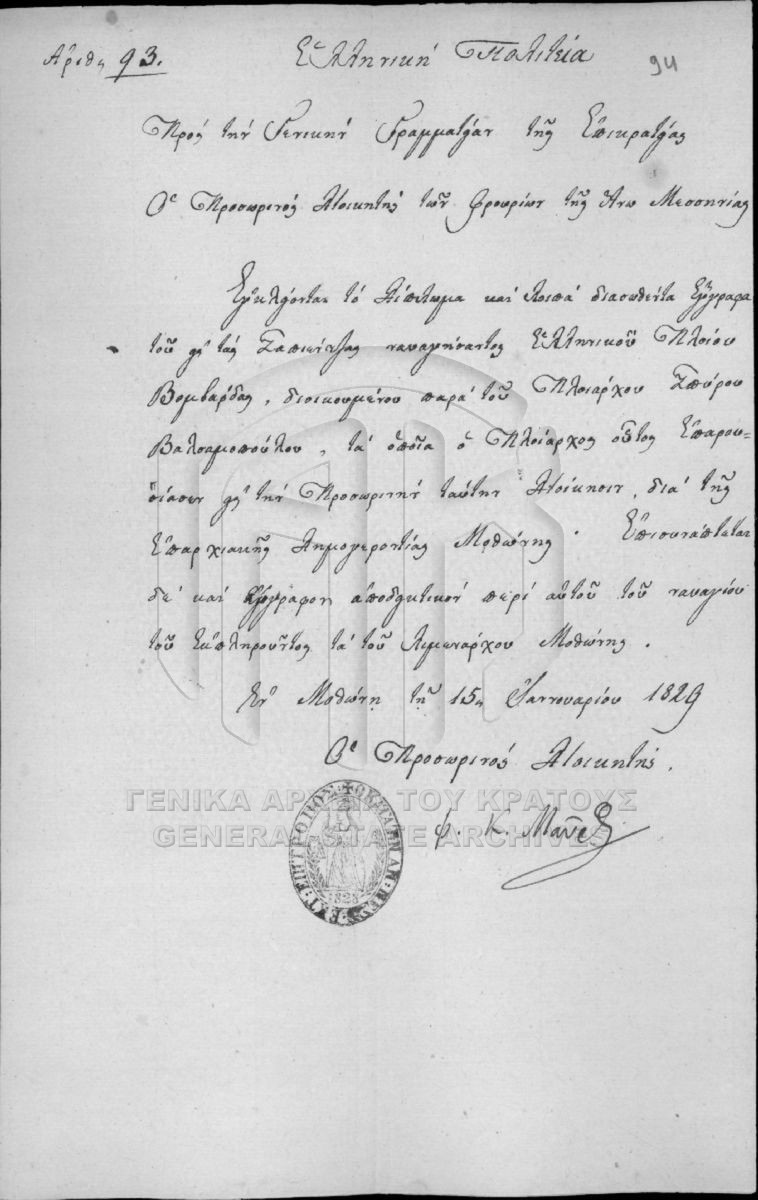 Ἀριθ. 93. Ἑλληνικὴ Πολιτεία 94
Πρὸς τὴν Γενικὴν Γραμματείαν τῆς Ἐπικρατείας
Ὁ Προσωρινὸς Διοικητὴς τῶν φρουρίων τῆς Ἄνω Μεσσηνίας
Ἐγκλείονται τὸ δίπλωμα καὶ λοιπὰ διασωθέντα ἔγγραφα
τοῦ εἰς τὰς Σαπιέντζας ναυαγήσαντος Ἑλληνικοῦ Πλοίου
Βομβάρδας, διοικουμένου παρὰ τοῦ Πλοιάρχου Σπύρου
Βαλσαμοπούλου, τὰ ὁποῖα ὁ Πλοίαρχος οὗτος ἐπαρου-
σίασεν εἰς τὴν Προσωρινὴν ταύτην Διοίκησιν, διὰ τῆς
Ἐπαρχιακῆς Δημογεροντίας Μοθώνης. Ἐπισυνάπτεται
δὲ καὶ ἔγγραφον ἀποδεικτικὸν περὶ αὐτοῦ τοῦ ναυαγίου
τοῦ ἐκπληροῦντος τὰ τοῦ Λιμενάρχου Μοθώνης.
Ἐν Μοθώνῃ τῇ 15 Ἰαννουαρίου 1829
Ὁ Προσωρινὸς Διοικητής.
ΓΕΝΙΚΑ ΑΡΧΕΙΑ ΤΟΥ ΚΡΑΤΟΥΣ
GENERAL STATE ARCHIVES
φ. Κ. 
1828